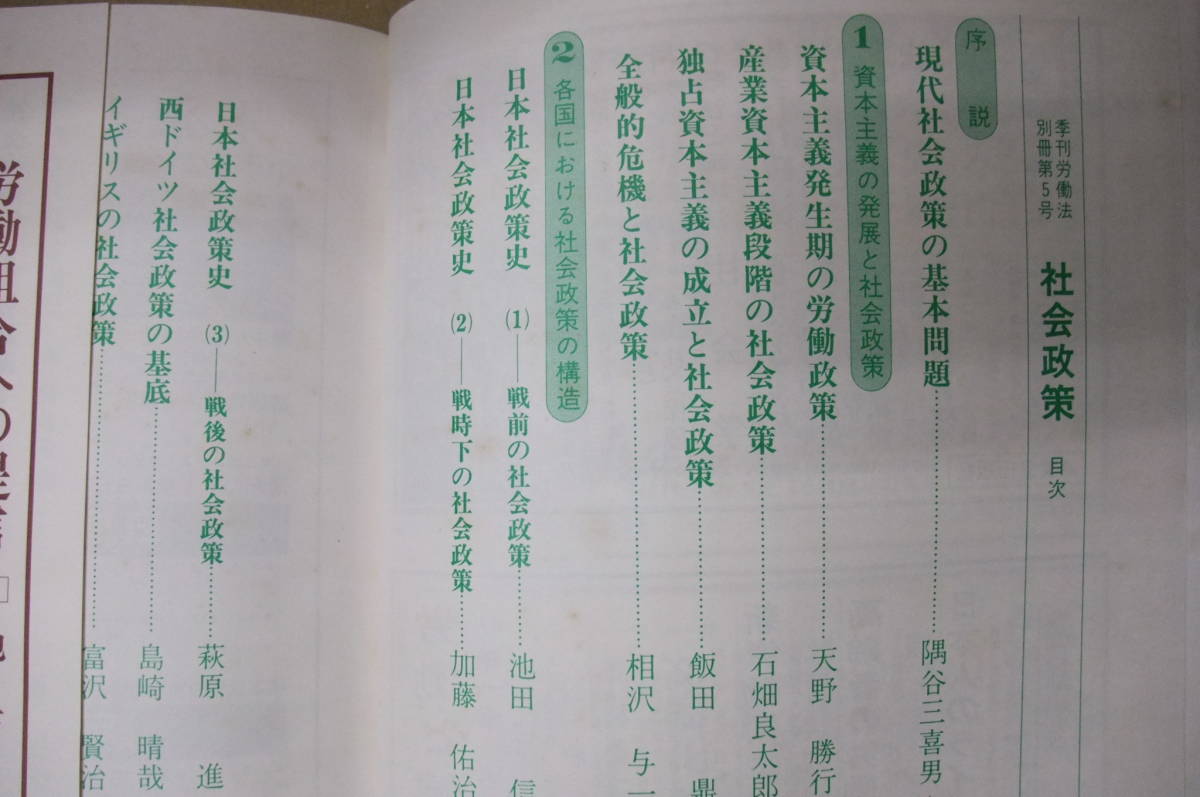 季刊労働法
別冊第5号
社会政策 目次
序説
現代社会政策の基本問題…………隅谷三喜男
1 資本主義の発展と社会政策
資本主義発生期の労働政策…………天野勝行
産業資本主義段階の社会政策…………石畑良太郎
独占資本主義の成立と社会政策…………飯田鼎
全般的危機と社会政策…………相沢与一
2 各国における社会政策の構造
日本社会政策史 (1)――戦前の社会政策…………池田信
日本社会政策史 (2)――戦時下の社会政策…………加藤佑治
日本社会政策史 (3)――戦後の社会政策…………萩原進
西ドイツ社会政策の基底…………島崎晴哉
イギリスの社会政策…………富沢賢治
労働組合への